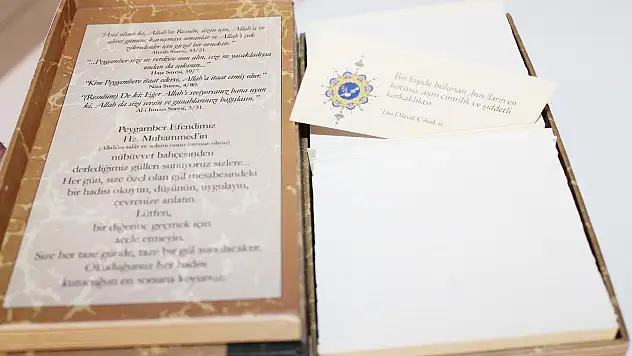 "And olsun ki, Allah'ın Resulü, sizin için, Allah'a ve
ahiret gününe kavuşmayı umanlar ve Allah'ı çok
zikredenler için güzel bir örnektir."
Ahzab Suresi, 33/21.
"...Peygamber size ne verdiyse onu alın, size ne yasakladıysa
ondan da sakının..."
Haşr Suresi, 59/7.
"Kim Peygambere itaat ederse, Allah'a itaat etmiş olur."
Nisa Suresi, 4/80.
"(Resulüm) De ki: Eğer Allah'ı seviyorsanız bana uyun
ki, Allah da sizi sevsin ve günahlarınızı bağışlasın."
Al-i İmran Suresi, 3/31.
Peygamber Efendimiz
Hz. Muhammed'in
(Allah'ın salât ve selamı onun üzerine olsun)
nübüvvet bahçesinden
derlediğimiz gülleri sunuyoruz sizlere...
Her gün, size özel olan gül mesabesindeki
bir hadisi okuyun, düşünün, uygulayın,
çevrenize anlatın.
Lütfen,
bir diğerine geçmek için
acele etmeyin.
Size her taze günde, taze bir gül sunulacaktır.
Okuduğunuz her hadisi
kutucuğun en sonuna koyunuz.
Bir kişide bulunan huyların en
kötüsü, aşırı cimrilik ve şiddetli
korkaklıktır.
Ebu Dâvud, Cihad,